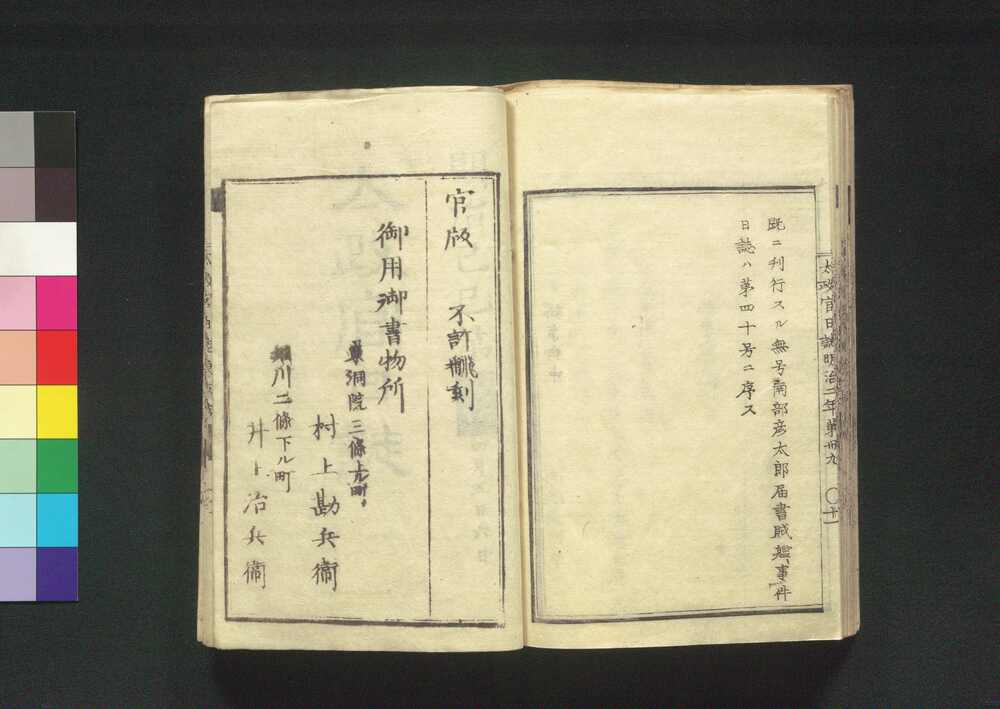 既ニ刊行スル無号南部彦太郎届書賊艦事件
日誌ハ第四十号ニ序ス
太政官日誌明治二年第卅九 〇十一
官版 不許翻刻
御用御書物所
東洞院三條上ル町
村上勘兵衞
堀川二條下ル町
井上治兵衞